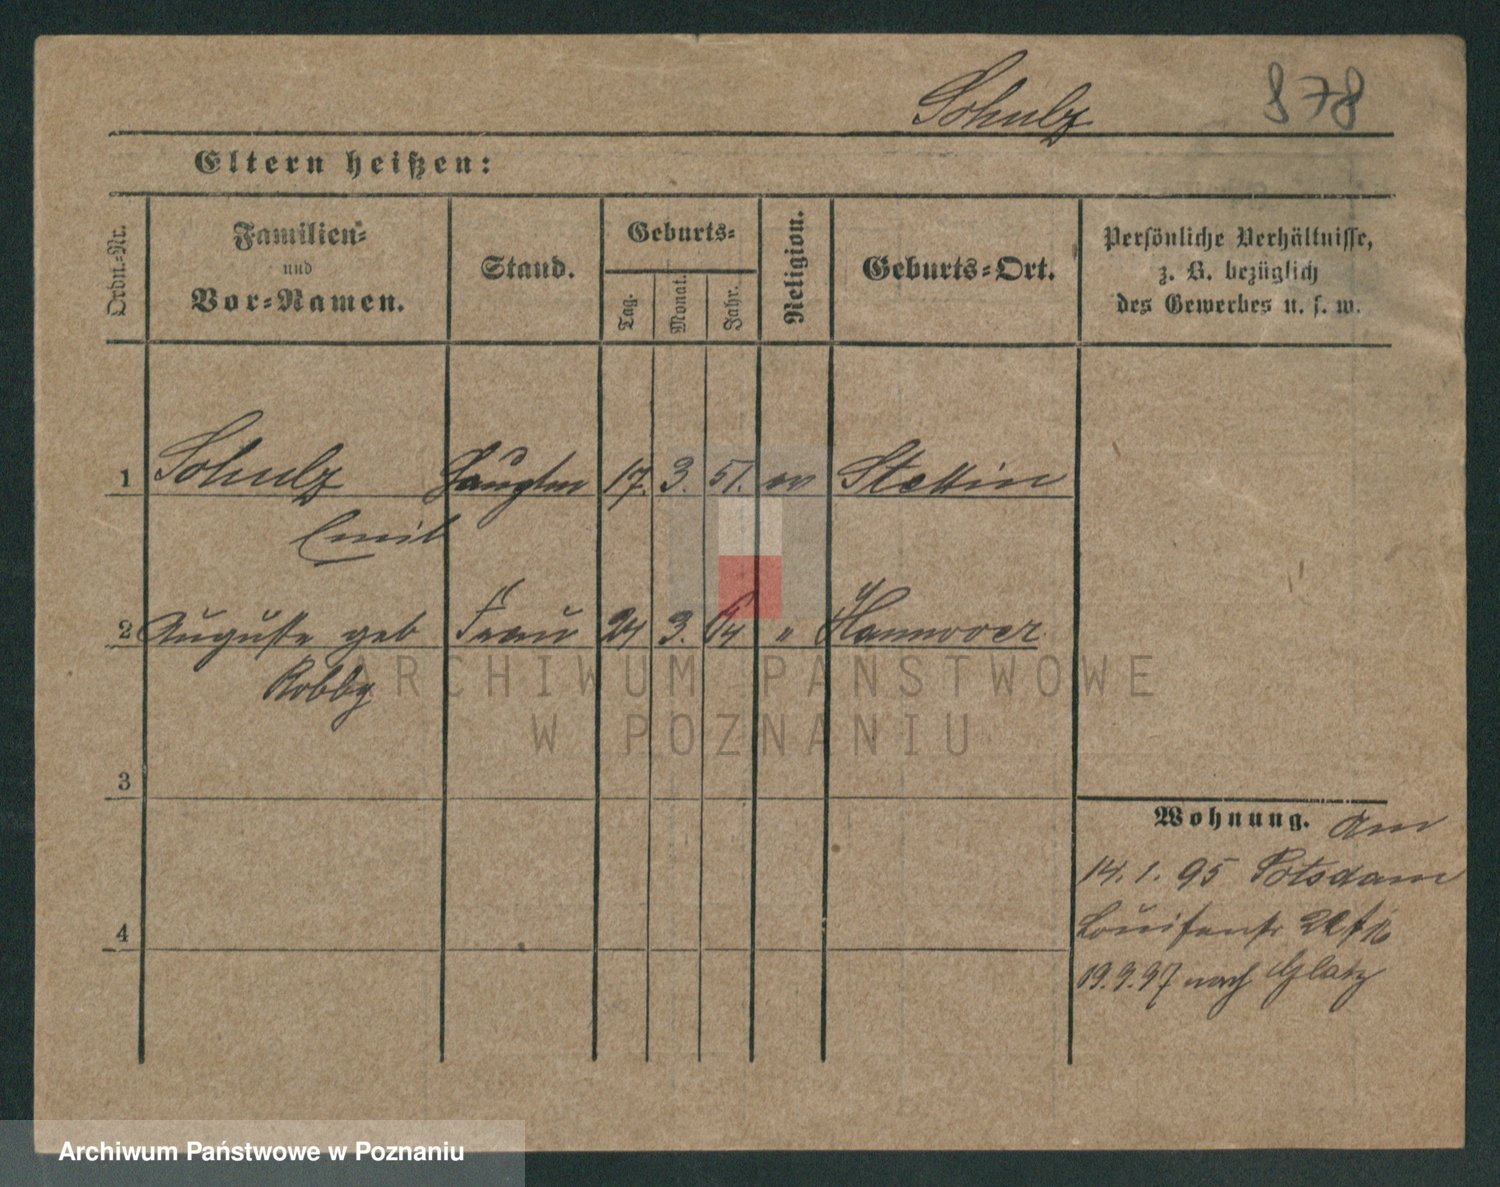 Schulz 878
Eltern heißen:
Ordn.-Nr.
Familien-
und
Vor-Namen.
Stand.
Geburts-
Tag.
Monat.
Jahr.
Religion.
Geburts-Ort.
Persönliche Verhältnisse,
z. B. bezüglich
des Gewerbes u. s. w.
1 Schulz Hauptm 17. 3. 51. ev Stettin
Emil
2 Auguste geb Frau 24 3. 64 " Hannover
Robby
ARCHIWUM PAŃSTWOWE
W POZNANIU
3
Wohnung. Am
14. 1. 95 Potsdam
Louisenstr
4
19.9.97 nach Glatz
Archiwum Państwowe w Poznaniu